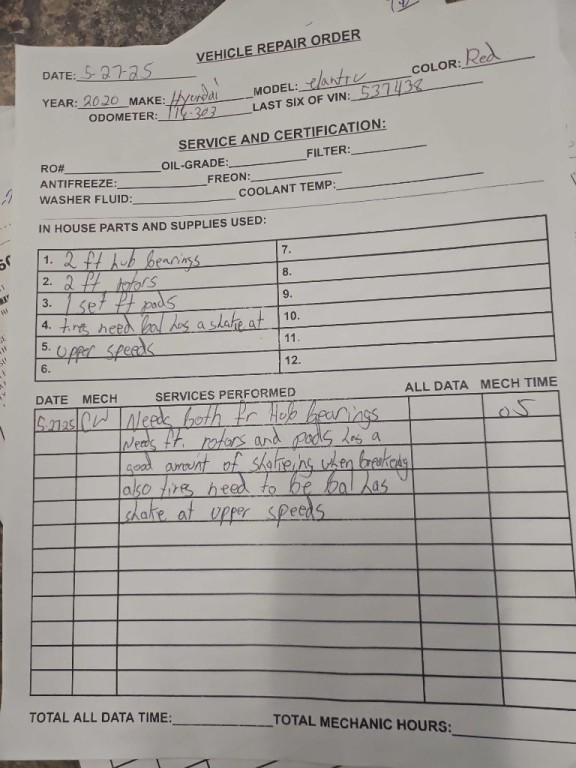 VEHICLE REPAIR ORDER
DATE: 5-27-25
YEAR: 2020 MAKE: Hyundai MODEL: elantra COLOR: Red
ODOMETER: 116-303 LAST SIX OF VIN: 537438
SERVICE AND CERTIFICATION:
RO# OIL-GRADE: FILTER:
ANTIFREEZE: FREON:
WASHER FLUID: COOLANT TEMP:
IN HOUSE PARTS AND SUPPLIES USED:
1. 2 ft hub bearings 7.
2. 2 ft rotors 8.
3. 1 set ft pads 9.
4. tires need bal has a shake at 10.
5. upper speeds 11.
6. 12.
DATE MECH SERVICES PERFORMED ALL DATA MECH TIME
5-27-25 CW Needs both fr Hub bearings 05
Needs ft. rotors and pads has a
good amount of when
also tires need to be bal has
shake at upper speeds
TOTAL ALL DATA TIME: TOTAL MECHANIC HOURS: